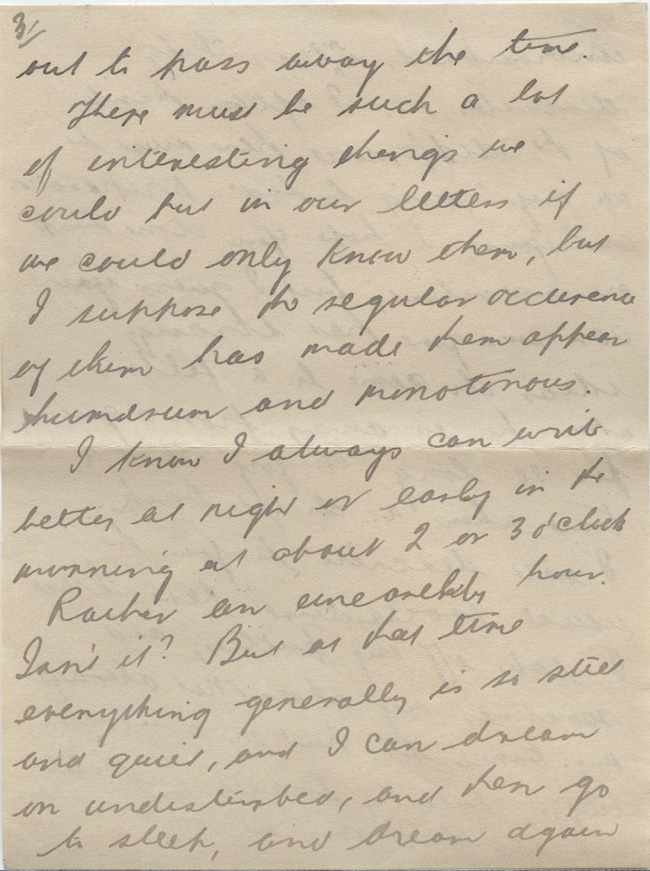 3/
out to pass away the time.
There must be such a lot
of interesting things we
could put in our letters if
we could only know them, but
I suppose the regular occurence
of them has made them appear
humdrum and monotonous.
I know I always can write
better at night or early in the
morning at about 2 or 3 o'clock
Rather an unearthly hour.
Isn't it? But at that time
everything generally is so still
and quiet, and I can dream
on undisturbed, and then go
to sleep, and dream again